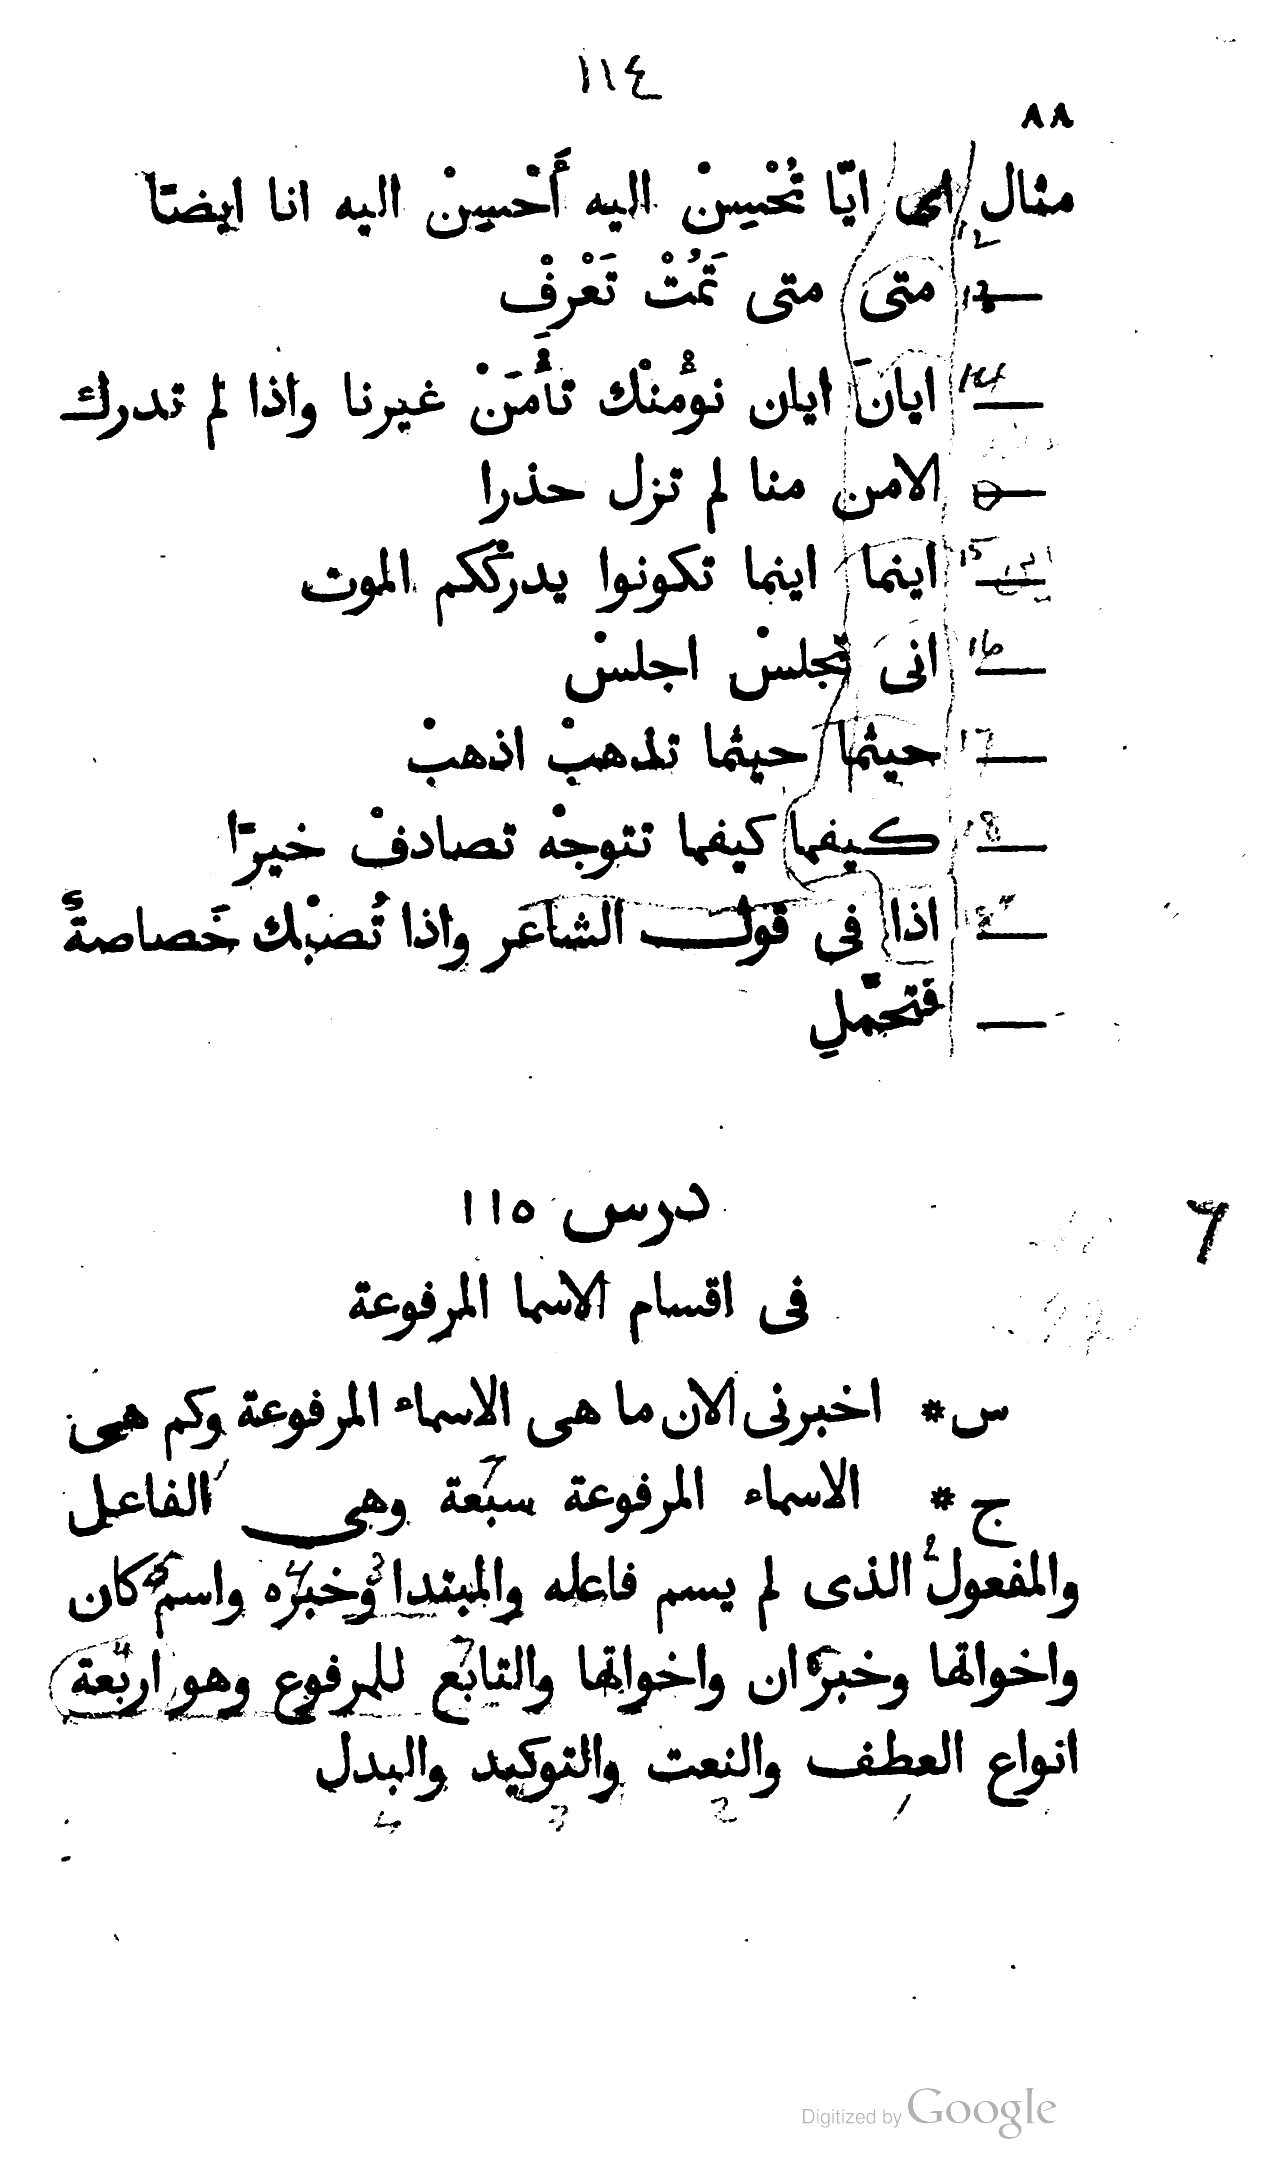 ١١٤
٨٨
مثال اى ايّا تُحْسِنْ اليه أَحْسِنْ اليه انا ايضًا
— متى متى تَمُتْ تَعْرِفْ
— ايانَ ايان نوُمنْك تأْمَنْ غيرنا واذا لم تدرك
— الامن منا لم تزل حذرا
— اينما اينما تكونوا يدركْكم الموت
— انى تجلسْ اجلسْ
— حيثما حيثما تذهبْ اذهبْ
— كيفما كيفما تتوجهْ تصادفْ خيرًا
— اذا فى قول الشاعر واذا تُصبْك خَصاصةٌ
— فتحمّلِ
درس ١١٥
فى اقسام الاسما المرفوعة
س* اخبرنى الان ما هى الاسماء المرفوعة وكم هى
ج* الاسماء المرفوعة سبعة وهى الفاعل
والمفعول الذى لم يسم فاعله والمبتدا وخبره واسم كان
واخواتها وخبر ان واخواتها والتابع للمرفوع وهو اربعة
انواع العطف والنعت والتوكيد والبدل
Digitized by Google